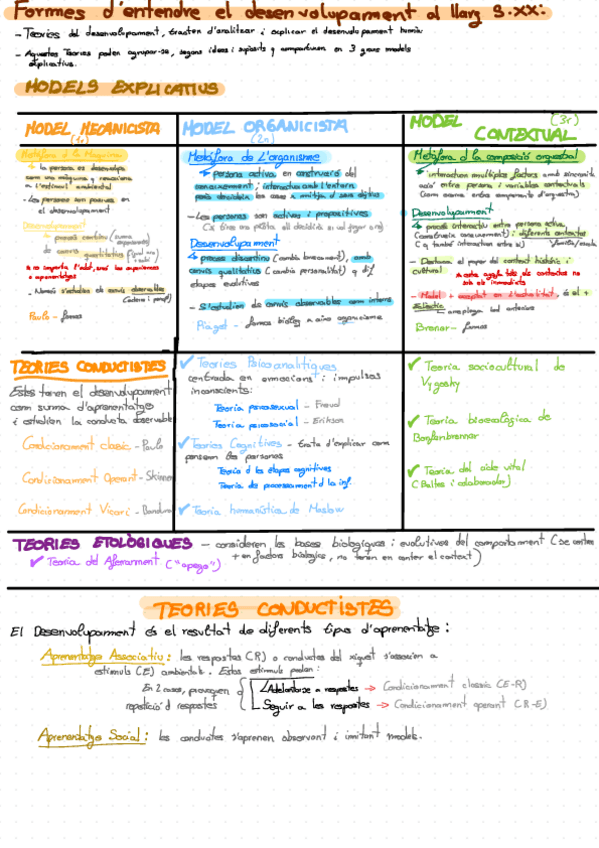 Formes d'entendre el desenvolupament al llarg S.XX:
- Teories del desenvolupament, tracten d'analitzar i explicar el desenvolupament humà
- Aquestes Teories poden agrupar-se, segons idees i supòsits q comparteixen en 3 grans models
explicatius.
MODELS EXPLICATIUS
MODEL MECANICISTA
(1r)
Metàfora d la Màquina
↳ la persona es desenvolupa
com una màquina q reacciona
a l'estímul ambiental
- Les persones son passives en
el desenvolupament
Desenvolupament
↳ procés continu (suma
de canvis quantitatius
no importa l'edat, sinó les experiències
o aprenentatges
- Només s'estudien els canvis observables
Paulo - famos
MODEL ORGANICISTA
(2n)
Metáfora de L'organisme
↳ persona activa en construcció del
coneixement; interactua amb l'entorn
però decideix les coses a mitjan d seus objtius
- Les persones son actives i propositives
Desenvolupament
↳ procés discontinu (cambis bruscament), amb
canvis qualitatius (cambia personalitat) q dif
etapes evolitives
- S'estudien els canvis observables com interns
Piaget - famos biòleg
MODEL CONTEXTUAL
(3r)
Metàfora d la composició orquestral
↳ interactuen múltiples factors amb sincronia
això entre persona i variables contextuals
(com música entre components d'orquestra)
Desenvolupament
↳ procés interactiu entre persona activa
(construeix coneixement) i diferents contextos
(q també interactuen entre si)
- Destaca el paper del context històric i
cultural
- Model + acceptat en l'actualitat, és el +
eclèctic
Bronner - famos
TEORIES CONDUCTISTES
Estes tenen el desenvolupament
com suma d'aprenentatge
i estudien la conducta observable
Condicionament clàssic - Paulo
Condicionament Operant - Skinner
Condicionament Vicari - Bandura
✓ Teories Psicoanalítiques
centrada en emocions i impulsos
inconscients:
Teoria psicosexual - Freud
Teoria psicosocial - Erikson
✓ Teories Cognitives - trata d'explicar com
pensem les persones
Teoria d les etapes cognitives
Teoria de processament d la inf.
✓ Teoria humanística de Maslow
✓ Teoria sociocultural de
Vygosky
✓ Teoria bioecològica de
Bronfenbrenner
✓ Teoria del cicle vital
(Baltes i colaborador)
TEORIES ETOLÒGIQUES - consideren les bases biològiques i evolutives del comportament (se centren
+ en factors biològics, no tenen en conter el context)
✓ Teoria del Aferrament ("apego")
TEORIES CONDUCTISTES
El Desenvolupament és el resultat de diferents tipus d'aprenentatge:
Aprenentatge Associatiu: les respostes (R) o conductes del xiquet s'associen a
estímuls (E) ambientals. Estos estímuls poden:
En 2 casos, provoquen
repetició d respostes
Adelantarse a respostes → Condicionament clàssic (E-R)
Seguir a les respostes → Condicionament operant (R-E)
Aprenentatge Social: les conductes s'aprenen observant i imitant models.